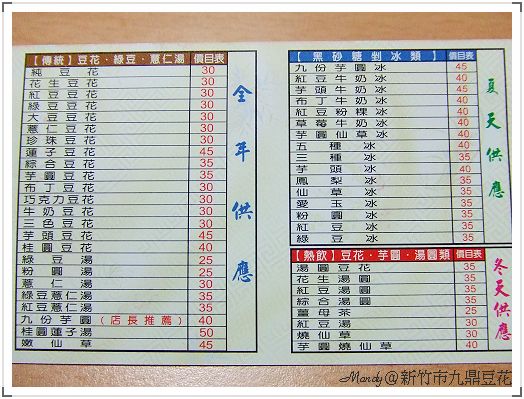 【傳統】豆花‧綠豆‧薏仁湯 價目表
純豆花 30
花生豆花 30
紅豆豆花 30
綠豆豆花 30
大豆豆花 30
薏仁豆花 30
珍珠豆花 30
蓮子豆花 45
綜合豆花 35
芋圓豆花 35
布丁豆花 30
巧克力豆花 30
牛奶豆花 30
三色豆花 30
芋頭豆花 45
桂圓豆花 40
綠豆湯 25
粉圓湯 25
薏仁湯 30
綠豆薏仁湯 35
紅豆薏仁湯 35
九份芋圓(店長推薦) 40
桂圓蓮子湯 50
嫩仙草 45
全年供應
【黑砂糖剉冰類】 價目表
九份芋圓冰 45
紅豆牛奶冰 40
芋頭牛奶冰 45
布丁牛奶冰 40
紅豆粉粿冰 40
草莓牛奶冰 40
芋圓仙草冰 40
五種冰 40
三種冰 35
芋頭冰 40
鳳梨冰 35
仙草冰 35
愛玉冰 35
粉圓冰 35
紅豆冰 35
綠豆冰 35
夏天供應
【熱飲】豆花‧芋圓‧湯圓類 價目表
湯圓豆花 35
花生湯圓 35
紅豆湯圓 35
綜合湯圓 35
薑母茶 25
紅豆湯 30
燒仙草 40
芋圓燒仙草 40
冬天供應
Mandy@新竹市九鼎豆花